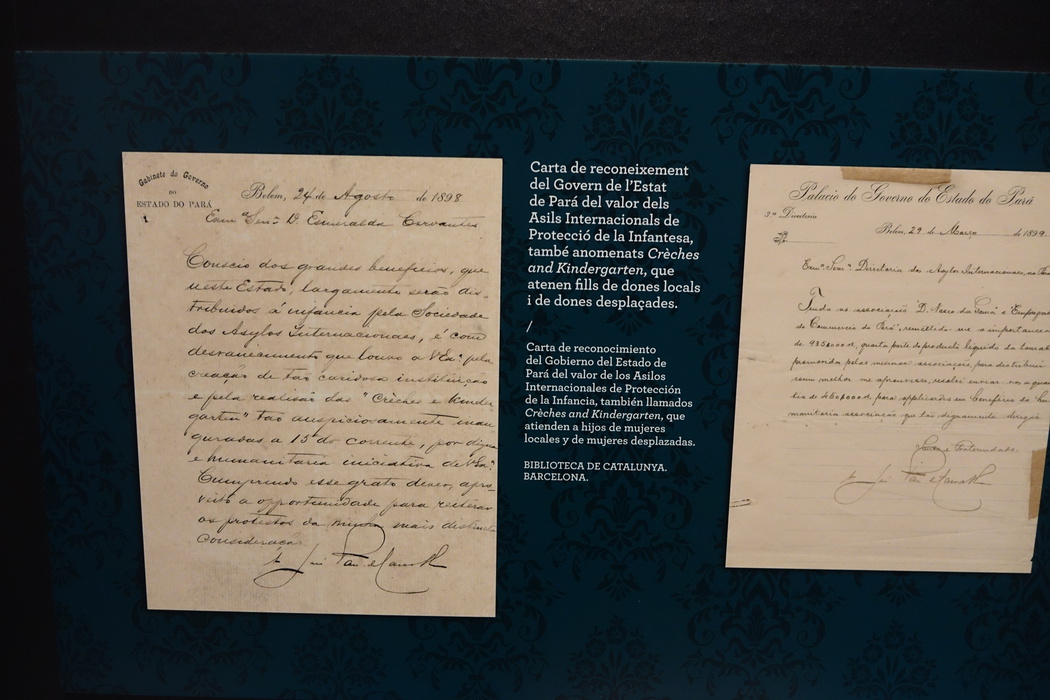 Gabinete do Governo
DO
ESTADO DO PARÁ
Belem, 24 de Agosto de 1898
Exmª Senrª D. Esmeralda Cervantes
Conscio dos grandes beneficios, que
neste Estado, largamente serão dis-
tribuidos á infancia pela Sociedade
dos Asylos Internacionaes, é com
desvanecimento que louvo a V Exª pela
creação de tao caridosa instituição
e pela realisação das "Crèches e Kinder
garten" tao auspiciosamente inau
guradas a 15 do corrente, por digna
e humanitaria iniciativa de V Exª
Cumprindo esse grato dever, apro-
veito a opportunidade para reiterar
os protestos da minha mais distincta
consideração
Carta de reconeixement
del Govern de l'Estat
de Pará del valor dels
Asils Internacionals de
Protecció de la Infantesa,
també anomenats Crèches
and Kindergarten, que
atenen fills de dones locals
i de dones desplaçades.
/
Carta de reconocimiento
del Gobierno del Estado de
Pará del valor de los Asilos
Internacionales de Protección
de la Infancia, también llamados
Crèches and Kindergarten, que
atienden a hijos de mujeres
locales y de mujeres desplazadas.
BIBLIOTECA DE CATALUNYA.
BARCELONA.
Palacio do Governo do Estado do Pará
3ª Directoria
Belem, 29 de Março de 1899.
Exmª Senrª Directoria dos Asylos Internacionaes, no Pará
Tendo as associações D. Vasco da Gama e Empregados
do Commercio do Pará, remettido me a importancia
de quarta parte do producto liquido da
promovida pelas mesmas associações, para distribuir
como melhor me aprouvesse, resolvi enviar vos a quan
tia de para applicardes em beneficio da hu
manitaria associação que tão dignamente dirigis
Saude e Fraternidade.